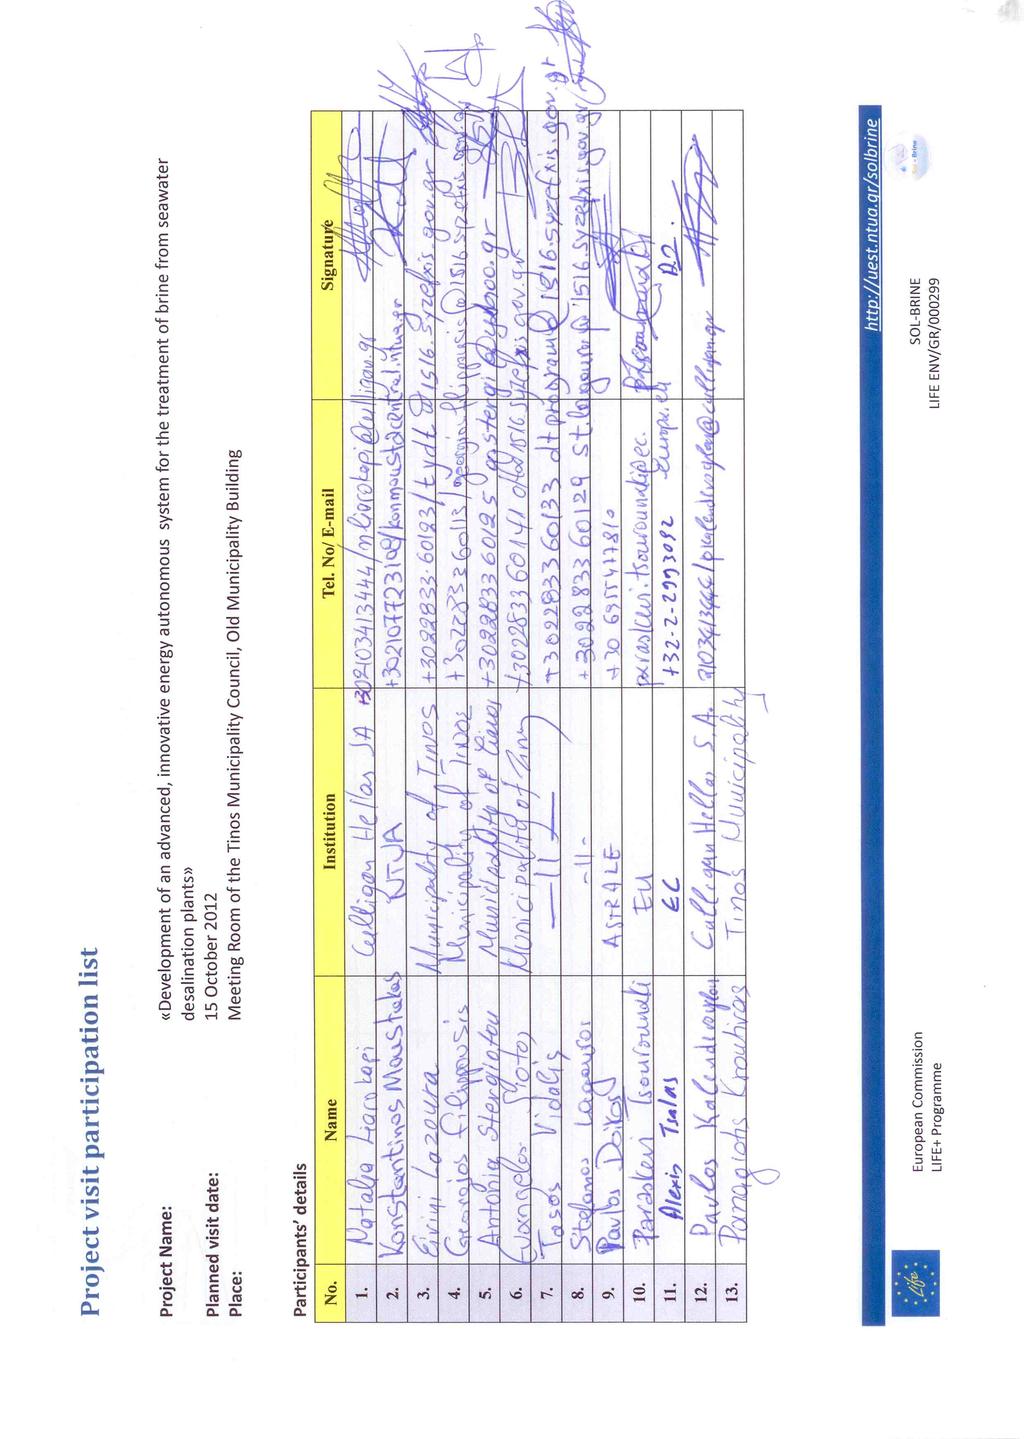 Project visit participation list
Project Name: «Development of an advanced, innovative energy autonomous system for the treatment of brine from seawater
desalination plants»
Planned visit date: 15 October 2012
Place: Meeting Room of the Tinos Municipality Council, Old Municipality Building
Participants' details
No. Name Institution Tel. No/ E-mail Signature
1. Natalia Liarokapi Culligan Hellas SA +302103413444/nliarokapi@culligan.gr
2. Konstantinos Moustakas NTUA +302107723108/konmoust@central.ntua.gr
3. Eirini Lazoura Municipality of TINOS +3022833-60123/tydt@1516.syzefxis.gov.gr
4. Georgios Filippousis Municipality of TINOS +3022833 60113/georgios.filippousis@1516.syzefxis.gov.gr
5. Antonia Stergiotou Municipality of Tinos +3022833 60125 @yahoo.gr
6. Evangelos Municipality of +3022833 60141 1516.syzefxis.gov.gr
7. Tasos Vidalis —11— +3022833 60133 dtprogram@1516.syzefxis.gov.gr
8. Stefanos Lagouros -11- +3022833 60129 @1516.syzefxis.gov.gr
9. Pavlos Doikos ASTRALE +30 6955477810
10. Paraskevi Tsouroundki EU paraskevi.tsouroundki@ec.
11. Alexis Tsalas EC +32-2-2993092 europa.eu A.T.
12. Pavlos Kalenderoglou Culligan Hellas S.A. 2103413444/pkalenderoglou@culligan.gr
13. Panagiotis Krontiras Tinos Municipality
http://uest.ntua.gr/solbrine
European Commission
LIFE+ Programme
SOL-BRINE
LIFE ENV/GR/000299
Life
Sol - Brine